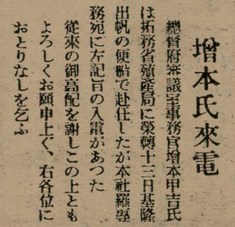 增本氏來電
總督府審議室事務官增本甲吉氏
は拓務省殖產局に榮轉十三日基隆
出帆の便船で赴任したが本社羅專
務宛に左記旨の入電があつた
從來の御高配を謝しこの上とも
よろしくお願申上ぐ、右各位に
おとりなしを乞ふ